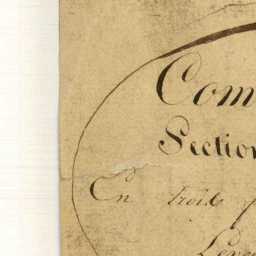 Com
Section
En trois